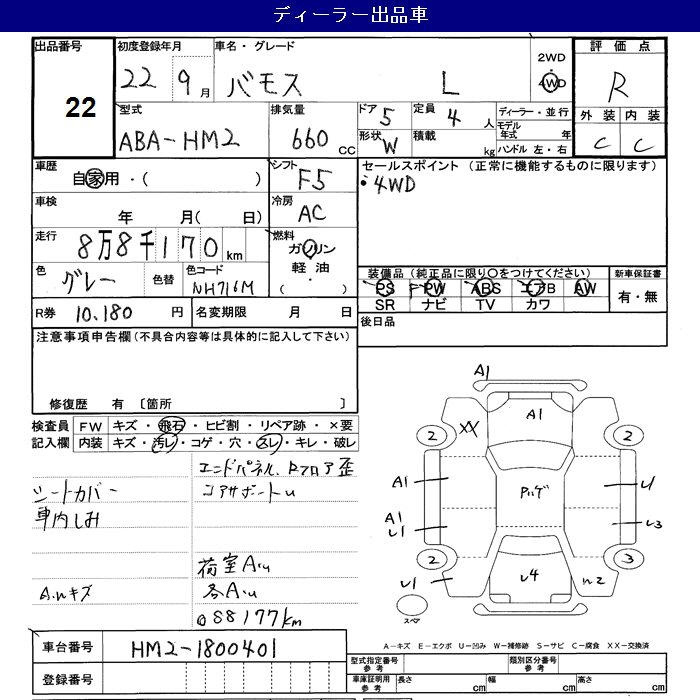 ディーラー出品車
出品番号 22
初度登録年月 22 9月
車名・グレード バモス L
2WD
4WD
評価点 R
型式 ABA-HM2
排気量 660 CC
ドア 5
形状 W
定員 4 人
積載 kg
ディーラー・並行
モデル年式 年
ハンドル 左・右
外装 内装
C C
車歴 自家用・( )
シフト F5
セールスポイント (正常に機能するものに限ります)
・4WD
車検 年 月( 日)
冷房 AC
走行 8万8千170km
燃料 ガソリン
軽油・
( )
色 グレー
色替
色コード NH716M
装備品(純正品に限り〇をつけてください)
新車保証書
PS PW ABS エアB AW
有・無
SR ナビ TV カワ
R券 10,180 円
名変期限 月 日
後日品
注意事項申告欄(不具合内容等は具体的に記入して下さい)
修復歴 有 〔箇所 〕
検査員記入欄
FW キズ・飛石・ヒビ割・リペア跡・×要
内装 キズ・汚レ・コゲ・穴・スレ・キレ・破レ
エンドパネル、Rフロア歪
シートカバー
コアサポートU
車内しみ
荷室AU
A.Uキズ
各A.U
88177km
A1
A1
XX
2
2
A1
Rハゲ
U1
A1
U1
U3
2
3
U1
U4
U2
スペア
A-キズ E-エクボ U-凹み W-補修跡 S-サビ C-腐食 XX-交換済
車台番号 HM2-1800401
登録番号
型式指定番号 参考
類別区分番号 参考
車庫証明用 参考
長さ cm
幅 cm
高さ cm